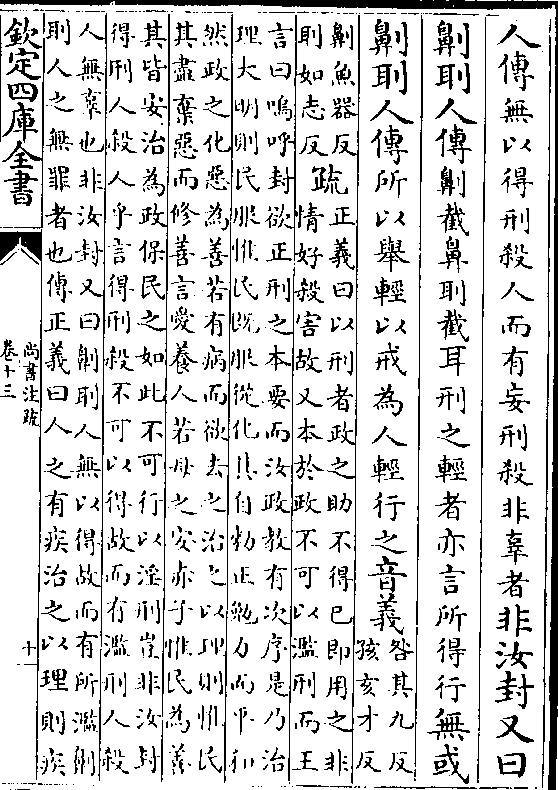 人傳無以得刑殺人而有妄刑殺非辜者非汝封又曰
劓刵人傳劓截鼻刵截耳刑之輕者亦言所得行無或
劓刵人傳所以舉輕以戒為人輕行之音義咎其九反
孩亥才反
劓魚器反
刵如志反
疏正義曰以刑者政之助不得已即用之非
情好殺害故又本於政不可以濫刑而王
言曰嗚呼封欲正刑之本要而汝政教有次序是乃治
理大明則民服惟民既服從化其自勑正勉力而平和
然政之化惡為善若有病而欲去之治之以理則惟民
其盡棄惡而修善言愛養人若母之安赤子惟民為善
其皆安治為政保民之如此不可行以淫刑豈非汝封
得刑人殺人乎言得刑殺不可以得故而有濫刑人殺
人無辜也非汝封又曰劓刵人無以得故而有所濫劓
刵人之無罪者也傳正義曰人之有疾治之以理則疾
欽定四庫全書
尚書注疏
卷十三
十一